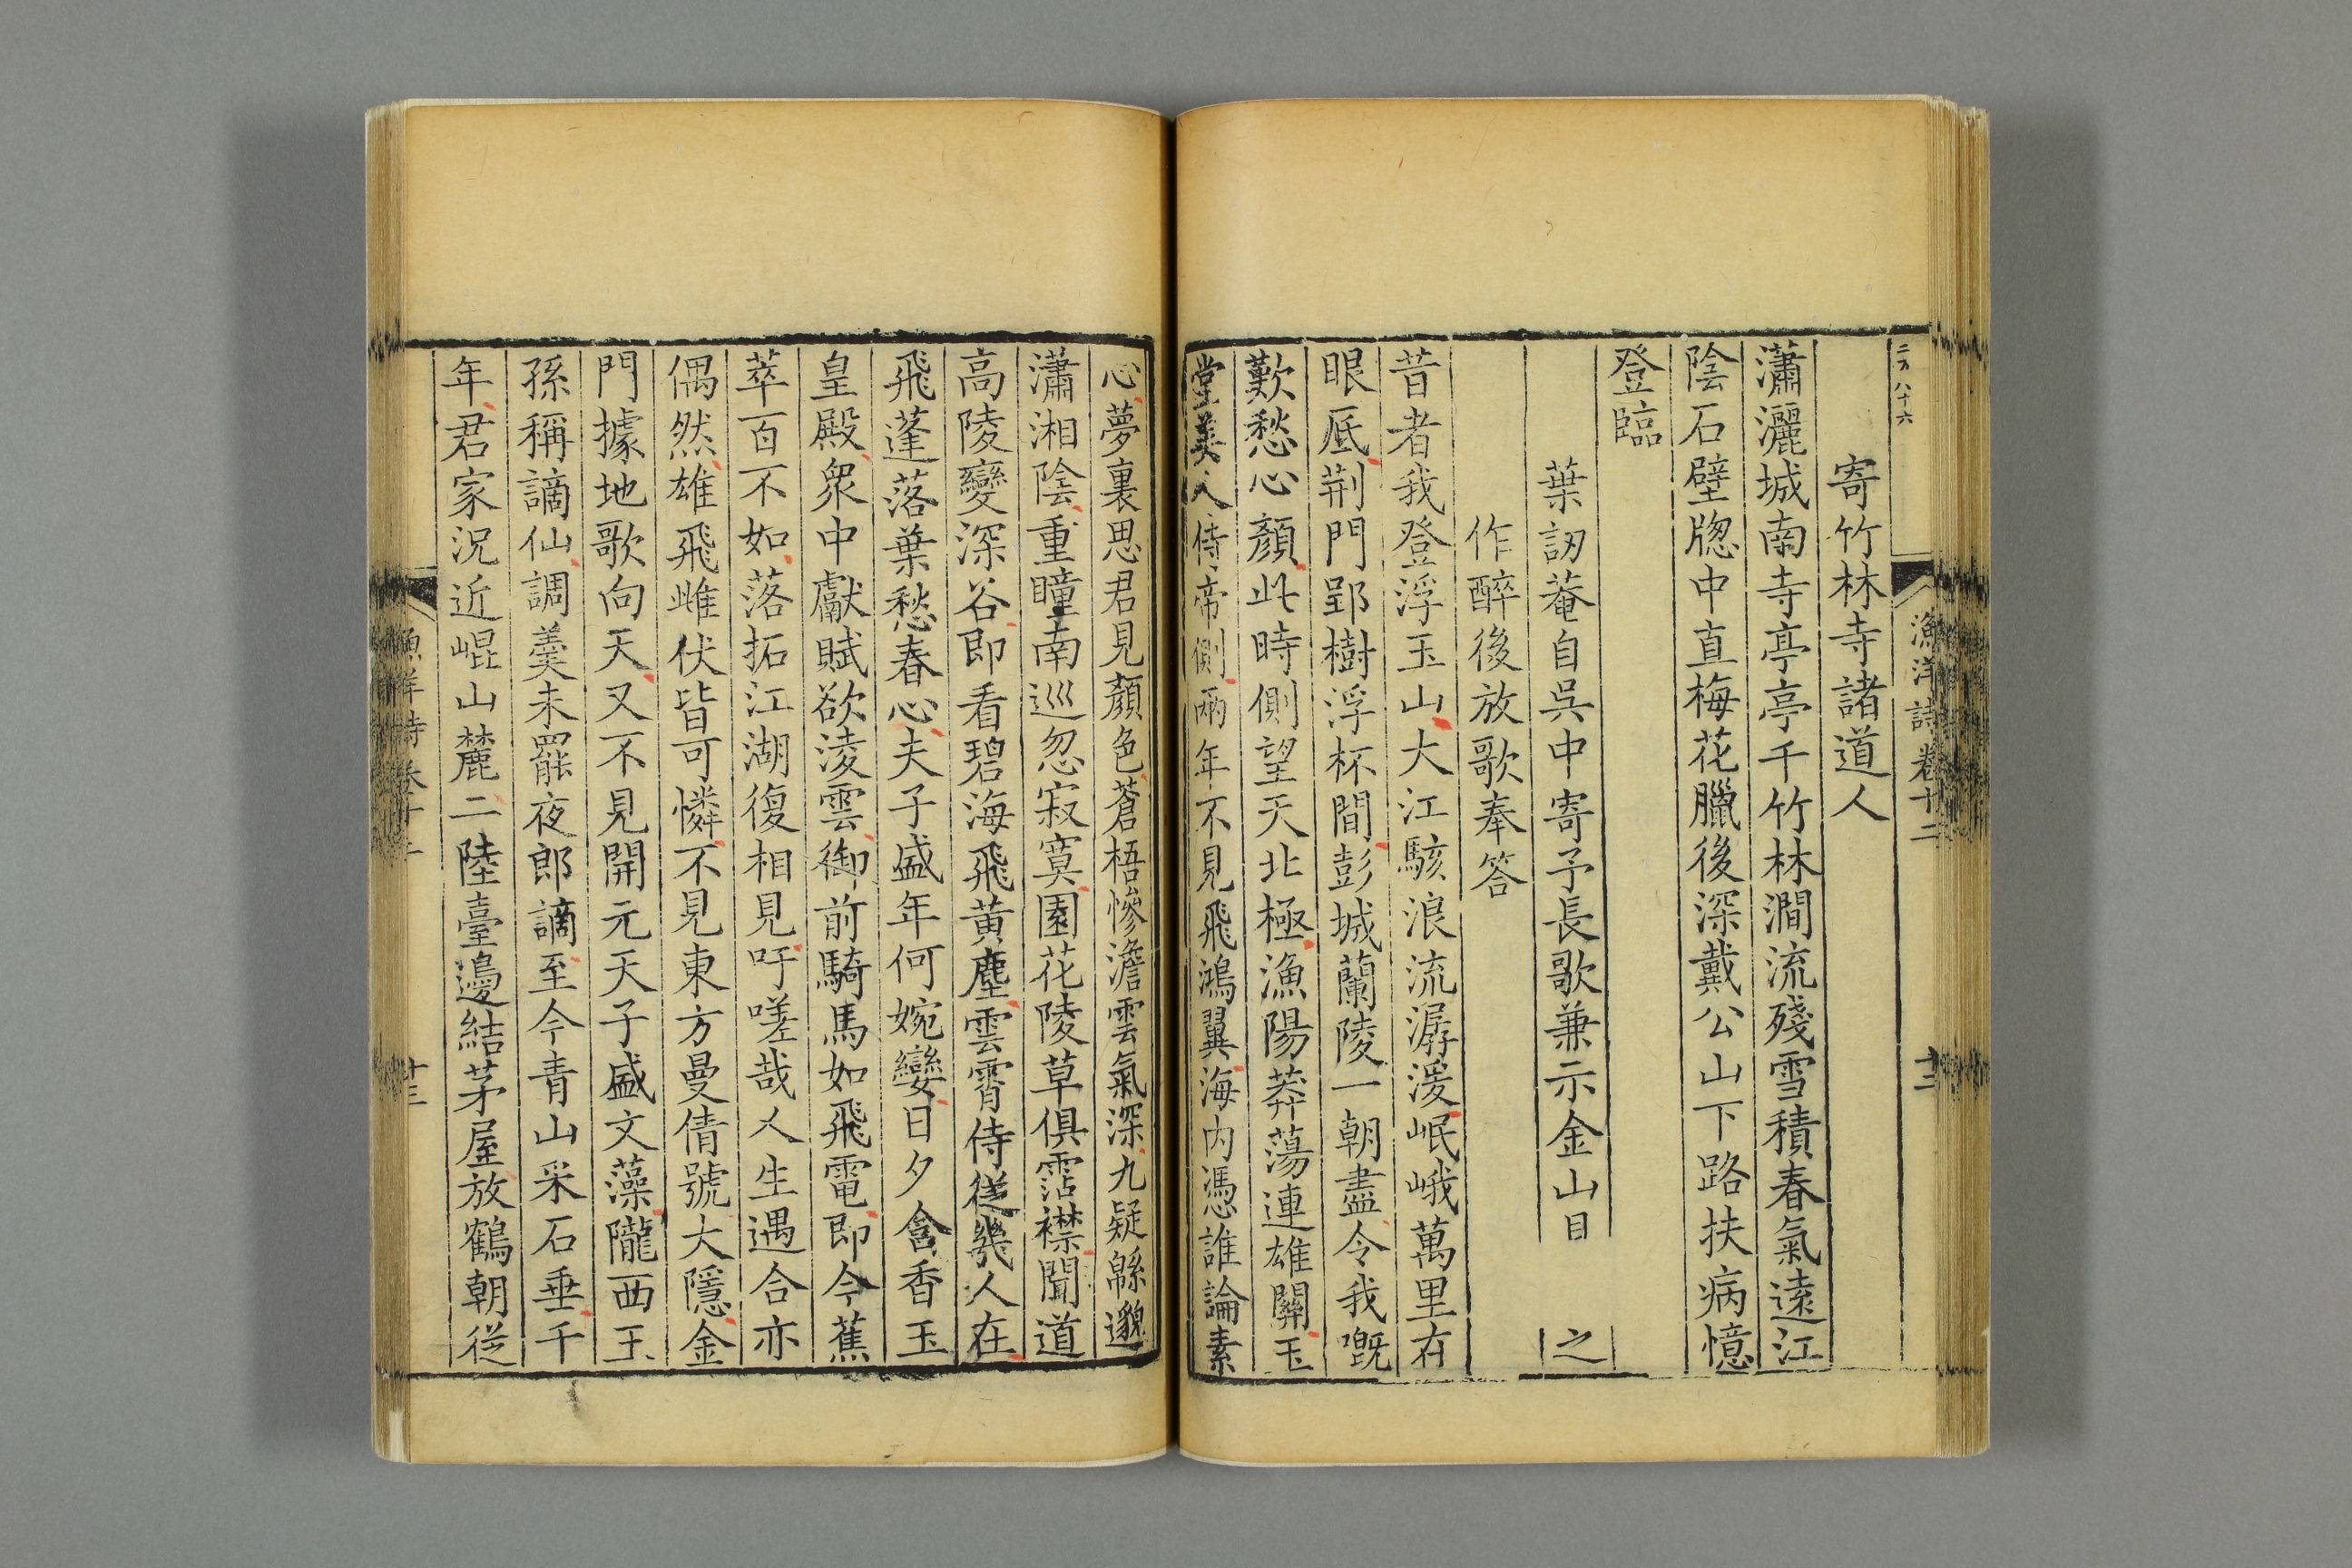 二百八十六
漁洋詩卷十二
十二
寄竹林寺諸道人
瀟灑城南寺亭亭千竹林澗流殘雪積春氣遠江
陰石壁牕中直梅花臘後深戴公山下路扶病憶
登臨
葉訒菴自吳中寄予長歌兼示金山目 之
作醉後放歌奉答
昔者我登浮玉山大江駭浪流潺湲岷峨萬里在
眼底荆門郢樹浮杯間彭城蘭陵一朝盡令我嘅
歎愁心顏此時側望天北極漁陽莽蕩連雄關玉
堂美人侍帝側兩年不見飛鴻翼海内憑誰論素
心夢裏思君見顏色蒼梧慘澹雲氣深九疑緜邈
瀟湘陰重瞳南巡忽寂寞園花陵草俱霑襟聞道
高陵變深谷即看碧海飛黃塵雲霄侍從幾人在
飛蓬落葉愁春心夫子盛年何婉孌日夕含香玉
皇殿衆中獻賦欲淩雲御前騎馬如飛電即今蕉
萃百不如落拓江湖復相見吁嗟哉人生遇合亦
偶然雄飛雌伏皆可憐不見東方曼倩號大隱金
門據地歌向天又不見開元天子盛文藻隴西王
孫稱謫仙調羹未罷夜郎謫至今青山采石垂千
年君家況近崐山麓二陸臺邉結茅屋放鶴朝從
漁洋詩卷十二
十三